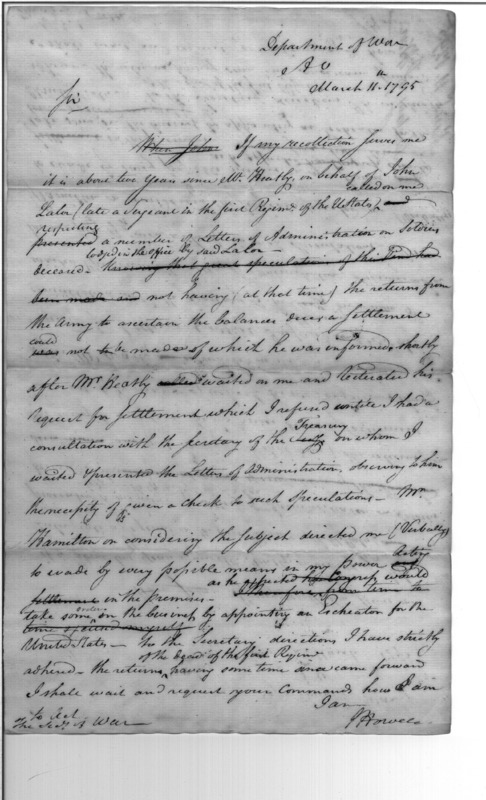 Department of War
A O
March 11th 1795
Sir
When John If my recollection serves me
it is about two years since Mr. Heatly, on behalf of John
called on me
Labor (late a Sergeant in the first Regimt. of the U States), and
respecting
presented a number of Letters of Administration on Soldiers
lodged in the office by said Labor
deceased - knowing that great speculation of this kind had
been made and not having (at that time) the returns from
the Army to ascertain the balances due, a settlement
could
not to be made of which he was informed, shortly
after Mr. Heatly waited on me and reiterated his
request for settlement which I refused until I had a
Treasury
consultation with the Secretary of the on whom I
waited & presented the Letters of administration, observing to him
the necessity of given a check to such speculations - Mr.
Hamilton on considering the subject directed me (Verbally)
to evade by every possible means in my power acting
as he expected Congress would
settlement in the Premises -
take some orders on the business by appointing an Escheator for the
United States - To the Secretary directions I have strictly
of the first Regimt
adhered - the returns, having some time since came forward
I shall wait and request your Commands how I am
to Act
I am
J Howell
The Secy. of War